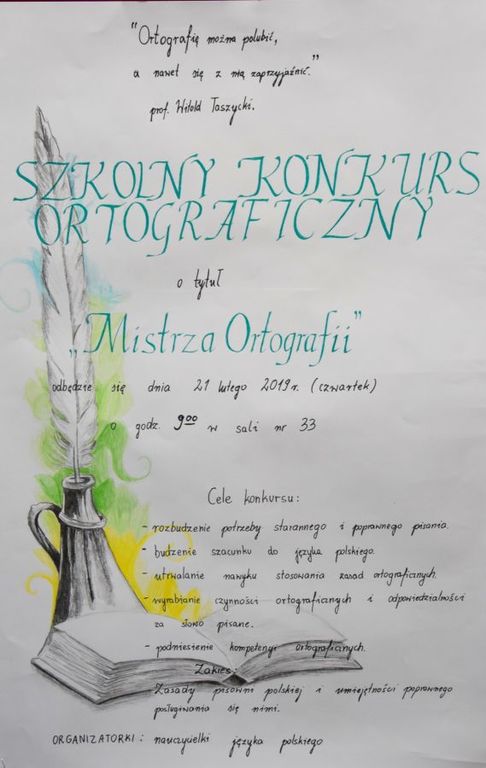 "Ortografię można polubić,
a nawet się z nią zaprzyjaźnić."
prof. Witold Taszycki.
SZKOLNY KONKURS
ORTOGRAFICZNY
o tytuł
„Mistrza Ortografii"
odbędzie się dnia 21 lutego 2019 r. (czwartek)
o godz. 9⁰⁰ w sali nr 33
Cele konkursu:
- rozbudzenie potrzeby starannego i poprawnego pisania.
- budzenie szacunku do języka polskiego.
- utrwalanie nawyku stosowania zasad ortograficznych.
- wyrabianie czynności ortograficznych i odpowiedzialności
za słowo pisane.
- podniesienie kompetencji ortograficznych.
Zakres:
Zasady pisowni polskiej i umiejętności poprawnego
posługiwania się nimi.
ORGANIZATORKI: nauczycielki języka polskiego